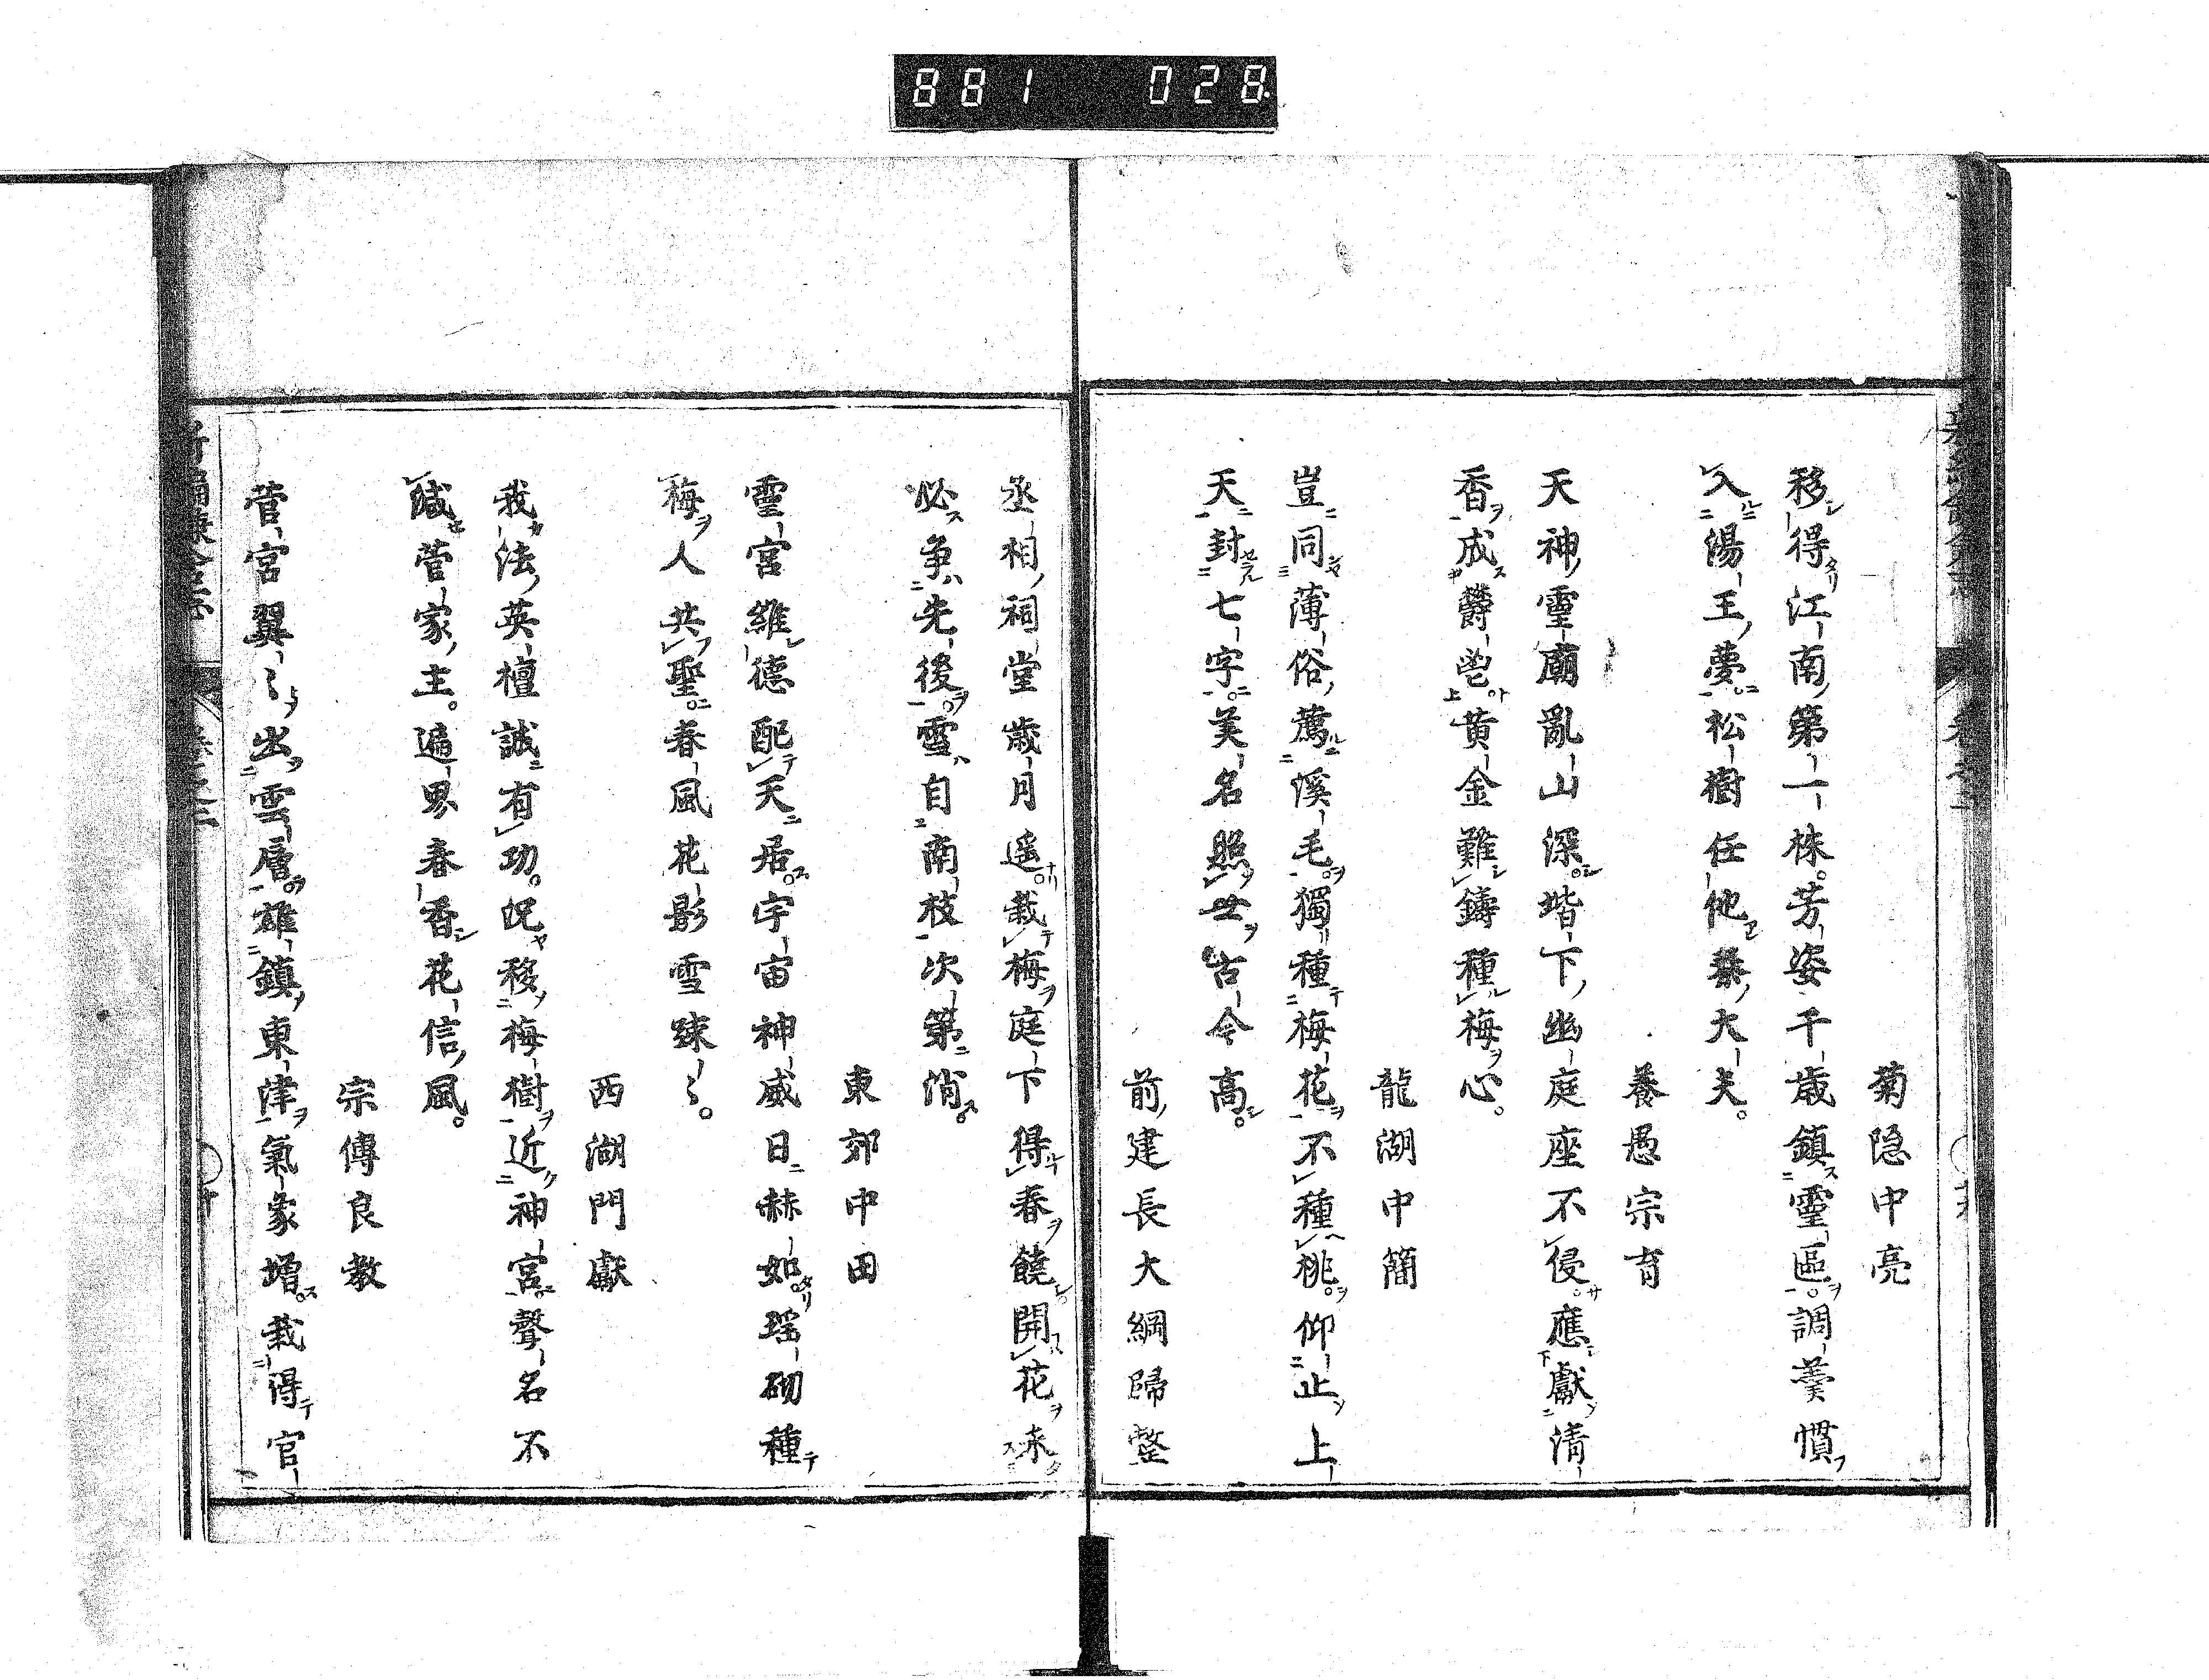 881 028
菊隠中亮
移得江南第一株。芳姿千歳鎮靈區。調羹慣
入湯王夢。松樹任他蓁大夫。
養愚宗育
天神靈廟亂山深。堦下幽庭座不侵。應獻清
香成欝鬯。黄金難鑄種梅心。
龍湖中簡
豈同薄俗薦溪毛。獨種梅花不種桃。仰止上
天封七字。美名照世古今高。
前建長大綱歸整
丞相祠堂歳月遥。栽梅庭下得春饒。開花来
必争先後。雪自南枝次第消。
東郊中田
靈宮維德配天居。宇宙神威日赫如。瑶砌種
梅人共聖。春風花影雪踈〻。
西湖門獻
我法英檀誠有功。况移梅樹近神宮。聲名不
減菅家主。遍界春香花信風。
宗傳良教
菅宮翼〻出雲層。雄鎮東津氣象増。栽得官